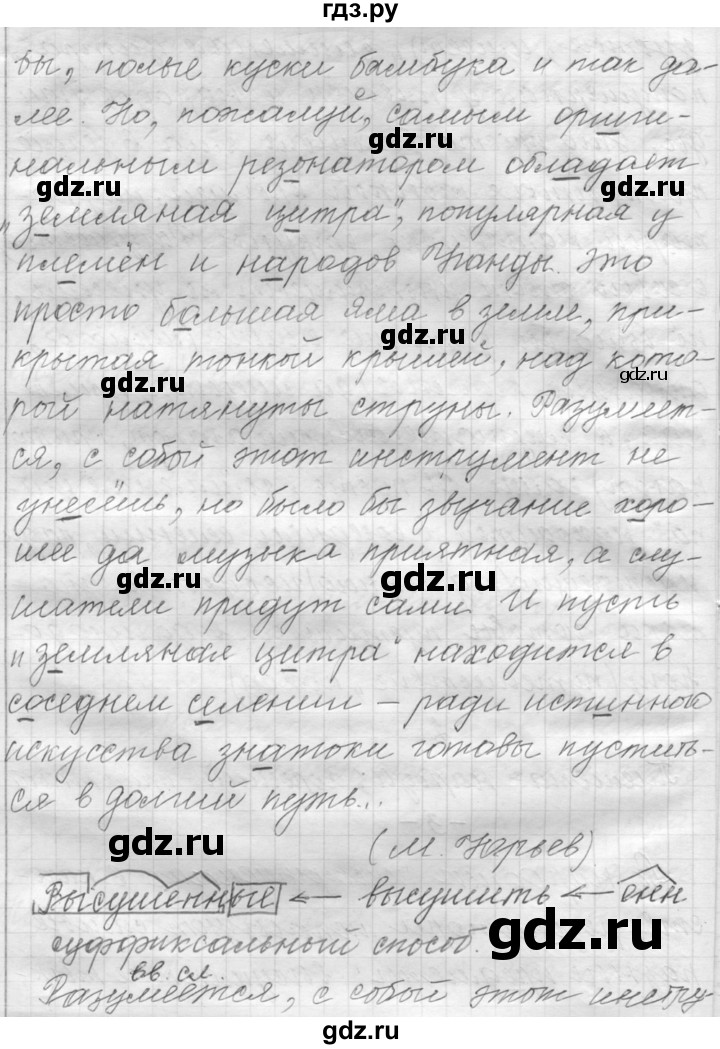 гдз.ру
бы, полые куски бамбука и так да-
лее. Но, пожалуй, самым ориги-
gdz.ru
нальным резонатором обладает
gdz.ru gdz.ru
"земляная цитра", популярная у
племён и народов Уганды. Это
просто большая яма в земле, при-
gdz.ru
крытая тонкой крышей, над кото-
gdz.ru gdz.ru
рой натянуты струны. Разумеет-
ся, с собой этот инструмент не
gdz.ru
унесёшь, но было бы звучание хоро-
шее да музыка приятная, а слу-
gdz.ru gdz.ru
шатели придут сами. И пусть
"земляная цитра" находится в
gdz.ru
соседнем селении – ради истинного
искусства знатоки готовы пустить-
ся в долгий путь...
gdz.ru
(М. Юрьев)
Высушенные ← высушить ← енн
gdz.ru
суффиксальный способ.
вв. сл.
Разумеется, с собой этот инстру-
гдз.ру